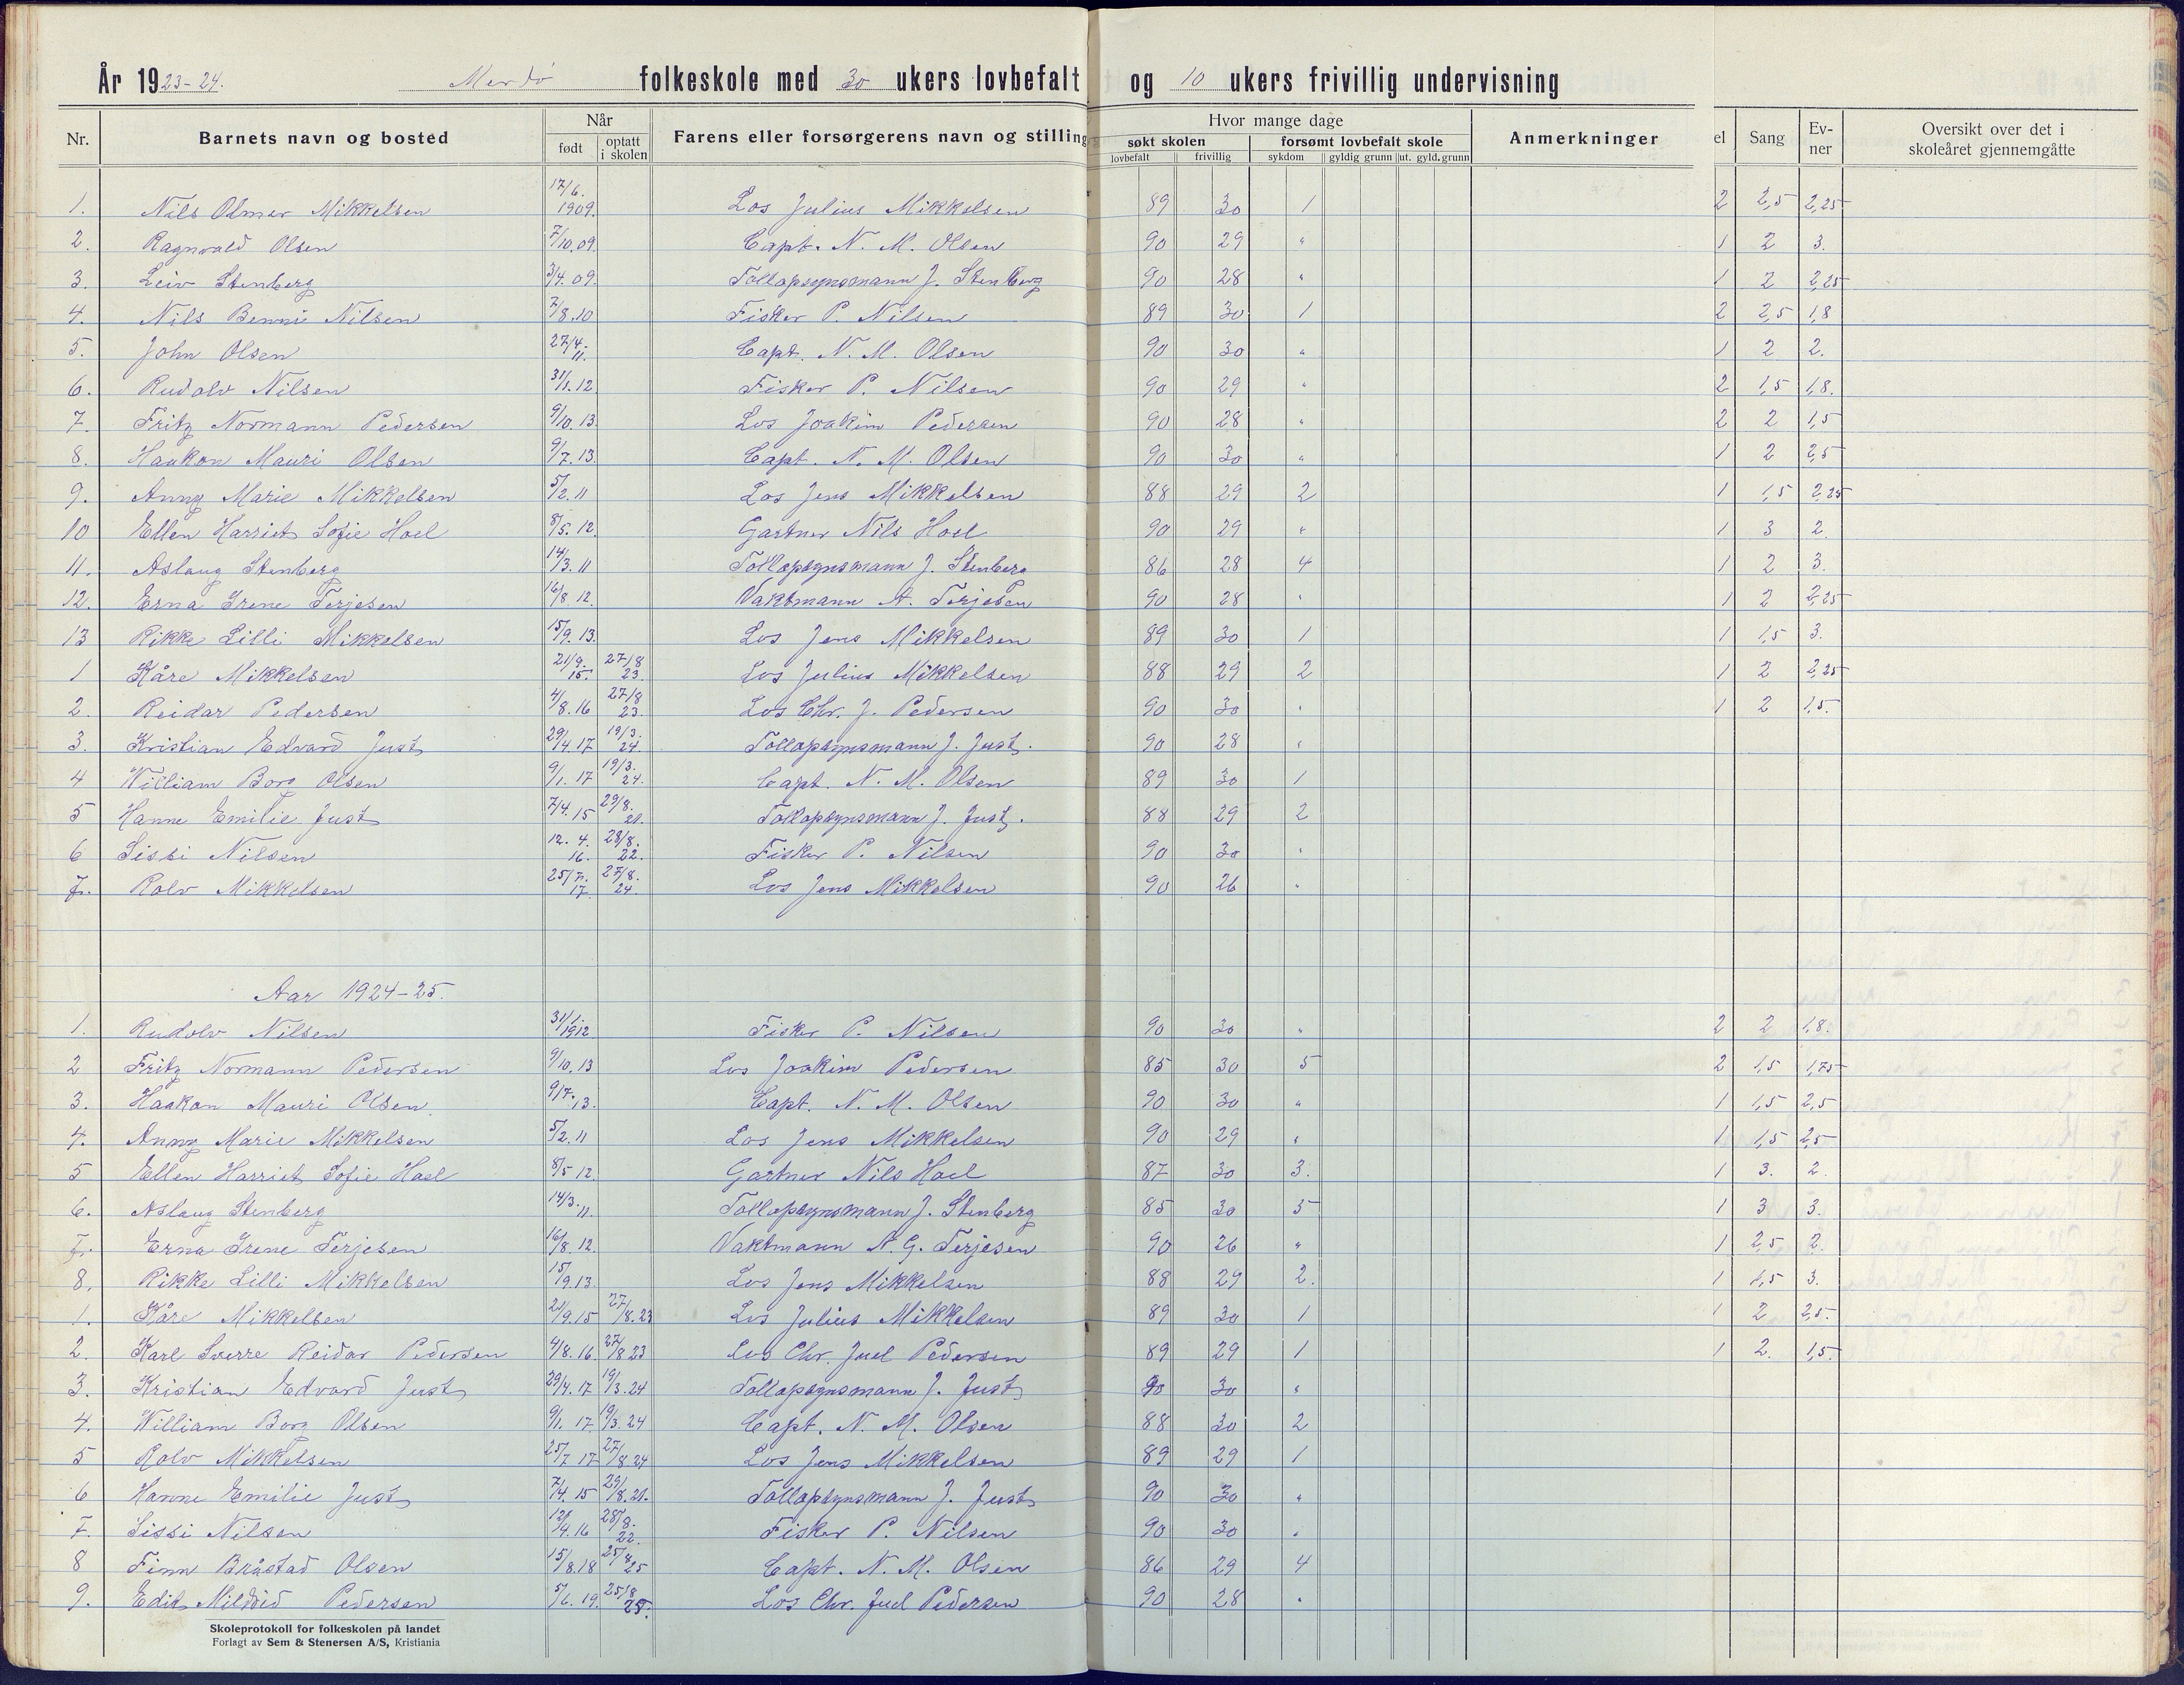 År 1923-24. Merdö folkeskole med 30 ukers lovbefalt og 10 ukers frivillig undervisning
Nr. Barnets navn og bosted Når født optatt i skolen Farens eller forsørgerens navn og stilling Hvor mange dage søkt skolen lovbefalt frivillig forsømt lovbefalt skole sykdom gyldig grunn ut. gyld. grunn Anmerkninger el Sang Ev-ner Oversikt over det i skoleåret gjennemgåtte
1. Nils Olmar Mikkelsen 17/6. 1909. Los Julius Mikkelsen 89 30 1 2 2,5 2,25
2. Ragnvald Olsen 7/10.09. Capt. N. M. Olsen 90 29 " 1 2 3.
3. Leiv Stenberg 3/4.09. Tollopsynsmann J. Stenberg 90 28 " 1 2 2,25
4. Nils Bennie Nilsen 7/8.10 Fisker P. Nilsen 89 30 1 2 2,5 1,8
5. John Olsen 27/4. 11. Capt. N. M. Olsen 90 30 " 1 2 2.
6. Rudolv Nilsen 31/1.12. Fisker P. Nilsen 90 29 " 2 1,5 1,8.
7. Fritz Normann Pedersen 9/10.13. Los Joakim Pedersen 90 28 " 2 2 1,5
8. Haakon Mauri Olsen 9/7.13. Capt. N. M. Olsen 90 30 " 1 2 2,5
9. Anny Marie Mikkelsen 5/2.11 Los Jens Mikkelsen 88 29 2 1 1,5 2,25
10 Ellen Harriet Sofie Hoel 8/5.12. Gartner Nils Hoel 90 29 " 1 3 2.
11. Aslaug Stenberg 14/3.11 Tollopsynsmann J. Stenberg 86 28 4 1 2 3.
12. Erna Irene Terjesen 16/8.12. Vaktmann A. Terjesen 90 28 " 1 2 2,25
13 Rikke Lilli Mikkelsen 15/9.13. Los Jens Mikkelsen 89 30 1 1 1,5 3.
1 Kåre Mikkelsen 21/9. 15. 27/8 23. Los Julius Mikkelsen 88 29 2 1 2 2,25
2. Reidar Pedersen 4/8.16 27/8 23. Los Chr. J. Pedersen 90 30 " 1 2 1,5.
3. Kristian Edvard Just 29/4.17 19/3. 24. Tollopsynsmann J. Just. 90 28 "
4 William Borg Olsen 9/1.17 19/3. 24. Capt. N. M. Olsen 89 30 1
5 Hanne Emilie Just 7/4.15 29/8. 21. Tollopsynsmann J. Just. 88 29 2
6 Sissi Nilsen 12.4. 16. 28/8. 22. Fisker P. Nilsen 90 30 "
7. Rolv Mikkelsen 25/7. 17. 27/8. 24. Los Jens Mikkelsen 90 26 "
Aar 1924-25.
1. Rudolv Nilsen 31/1. 1912 Fisker P. Nilsen 90 30 " 2 2 1,8.
2 Fritz Normann Pedersen 9/10.13 Los Joakim Pedersen 85 30 5 2 1,5 1,75
3. Haakon Mauri Olsen. 9/7.13. Capt. N. M. Olsen 90 30 " 1 1,5 2,5
4. Anny Marie Mikkelsen 5/2.11 Los Jens Mikkelsen 90 29 " 1 1,5 2,5
5 Ellen Harriet Sofie Hoel 8/5 12. Gartner Nils Hoel 87 30 3. 1 3. 2.
6. Aslaug Stenberg 14/3.11. Tollopsynsmann J. Stenberg 85 30 5 1 3 3.
7. Erna Irene Terjesen 16/8.12. Vaktmann A. G. Terjesen 90 26 " 1 2,5 2.
8. Rikke Lilli Mikkelsen 15/9.13. Los Jens Mikkelsen 88 29 2. 1 1,5 3.
1. Kåre Mikkelsen 21/9.15 27/8.23 Los Julius Mikkelsen 89 30 1 1 2 2,5.
2. Karl Sverre Reidar Pedersen 4/8.16. 27/8 23 Los Chr. Juel Pedersen 89 29 1 1 2. 1,5.
3. Kristian Edvard Just 29/4.17 19/3.24 Tollopsynsmann J. Just 90 30 "
4. William Borg Olsen 9/1.17 19/3.24 Capt. N. M. Olsen 88 30 2
5 Rolv Mikkelsen 25/7 17 27/8 24 Los Jens Mikkelsen 89 29 1
6 Hanne Emilie Just 7/4.15 29/8.21. Tollopsynsmann J. Just 90 30 "
7. Sissi Nilsen 12/4.16 28/8. 22. Fisker P. Nilsen 90 30 "
8 Finn Bråstad Olsen 15/8.18 25/8 25 Capt. N. M. Olsen 86 29 4
9. Edit Mildrid Pedersen 5/6.19. 25/8 25. Los Chr. Juel Pedersen 90 28 "
Skoleprotokoll for folkeskolen på landet
Forlagt av Sem & Stenersen A/S, Kristiania